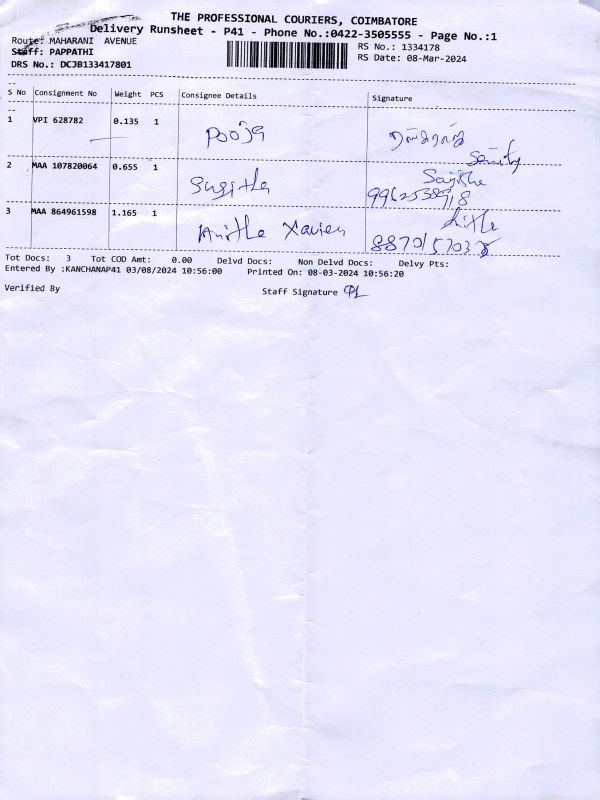 THE PROFESSIONAL COURIERS, COIMBATORE
Delivery Runsheet - P41 - Phone No.:0422-3505555 - Page No.:1
Route: MAHARANI AVENUE
RS No.: 1334178
Staff: PAPPATHI
RS Date: 08-Mar-2024
DRS No.: DCJB133417801
S No Consignment No Weight PCS Consignee Details Signature
1 VPI 628782 0.135 1 Pooja
Security
2 MAA 107820064 0.655 1 Sugitha
3 MAA 864961598 1.165 1 Anitha Xavier
Tot Docs: 3 Tot COD Amt: 0.00 Delvd Docs: Non Delvd Docs: Delvy Pts:
Entered By :KANCHANAP41 03/08/2024 10:56:00 Printed On: 08-03-2024 10:56:20
Verified By Staff Signature